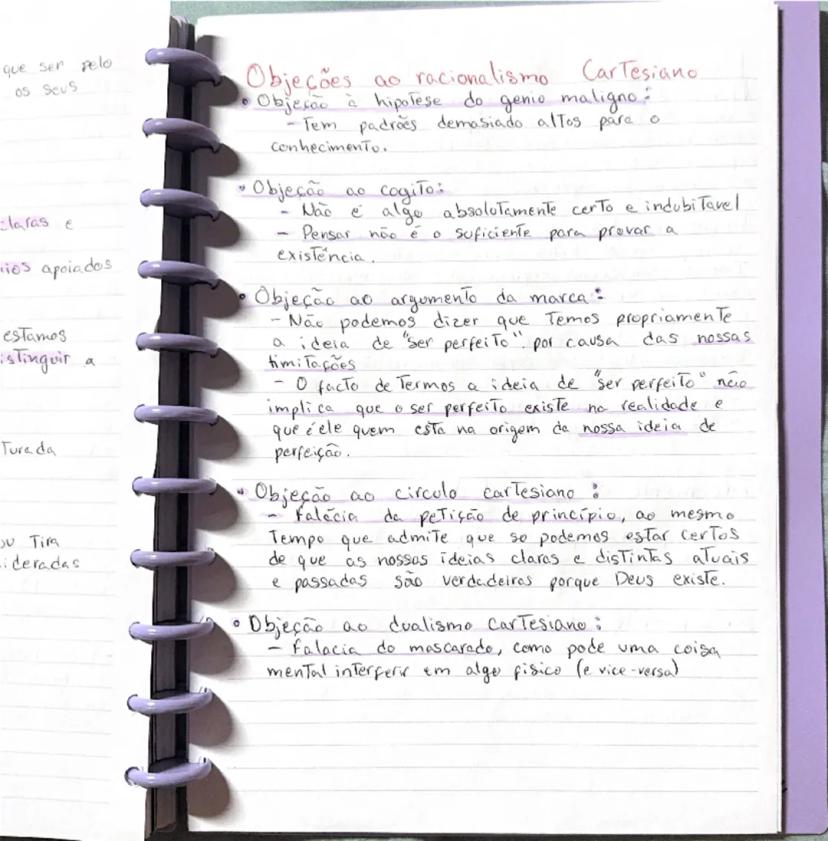 que ser pelo
os seus
claras e
apoiados
estamos
distinguir a
Turada
ou Tira
ideradas
Objeções ao racionalismo Cartesiano
• Objeção à hipotese do genio maligno:
- Tem padrões demasiado altos para o
conhecimento.
• Objeção ao cogito:
- Não é algo absolutamente certo e indubitavel
- Pensar não é o suficiente para provar a
existência.
• Objeção ao argumento da marca:
- Não podemos dizer que temos propriamente
a ideia de "ser perfeito" por causa das nossas
limitações
- O facto de termos a ideia de "ser perfeito" não
implica que o ser perfeito existe na realidade e
que é ele quem esta na origem da nossa ideia de
perfeição.
• Objeção ao circulo cartesiano:
- Falácia da petição de princípio, ao mesmo
tempo que admite que so podemos estar certos
de que as nossas ideias claras e distintas atuais
e passadas são verdadeiras porque Deus existe.
• Objeção ao dualismo cartesiano:
- Falacia do mascarado, como pode uma coisa
mental interferir em algo fisico (e vice-versa)